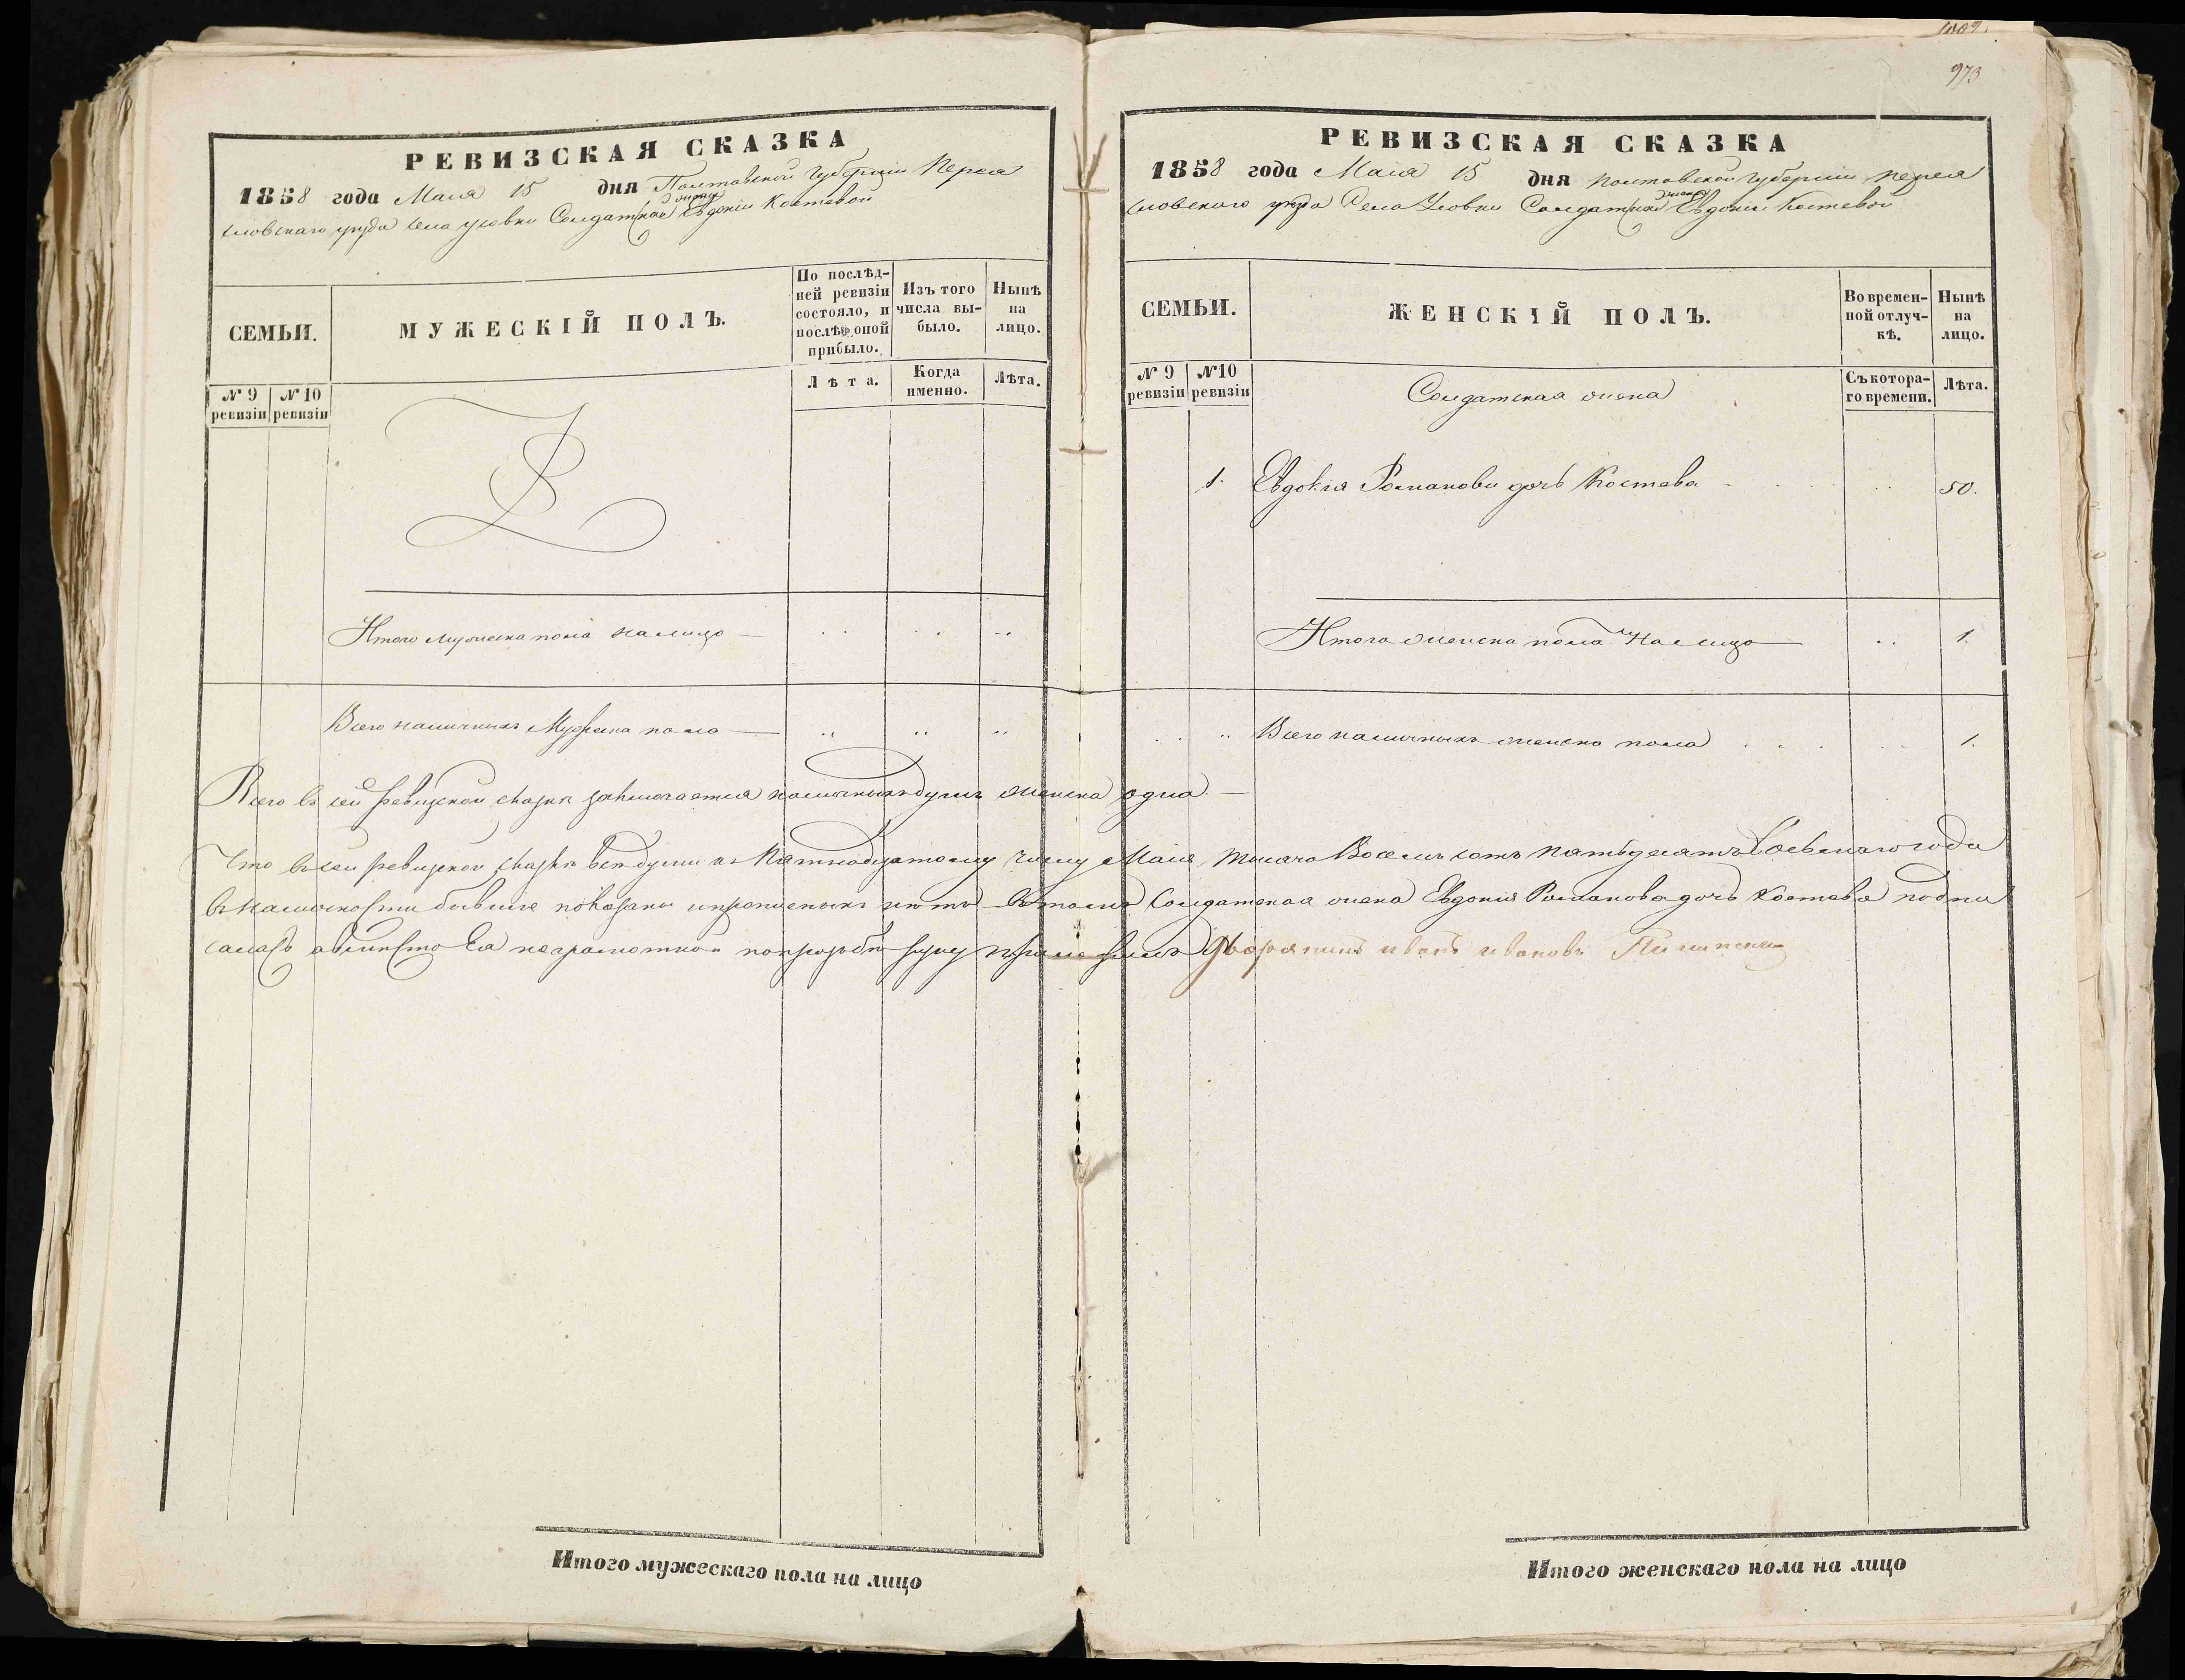 1002.
973
РЕВИЗСКАЯ СКАЗКА
1858 года Маія 15 дня Полтавской Губерніи Перея
славскаго уезда села Усовки Солдатской жены Евдокіи Костевой
СЕМЬИ.
МУЖЕСКІЙ ПОЛЪ.
По послѣд-
ней ревизіи
состояло, и
послѣ оной
прибыло.
Изъ того
числа вы-
было.
Нынѣ
на
лицо.
№ 9 ревизіи
№ 10 ревизіи
Лѣта.
Когда
именно.
Лѣта.
Итого мужеска пола на лицо
Всего наличныхъ Мужеска пола
РЕВИЗСКАЯ СКАЗКА
1858 года Маія 15 дня Полтавской Губерніи Перея
славского уезда Села Усовки Солдатской жены Евдокіи Костевой
СЕМЬИ.
ЖЕНСКІЙ ПОЛЪ.
Во времен-
ной отлуч-
кѣ.
Нынѣ
на
лицо.
№ 9 ревизіи
№ 10 ревизіи
Солдатская жена
Съ котора-
го времени.
Лѣта.
1. Евдокія Романова дочь Костева 50.
Итого женска пола На лицо 1.
Всего наличныхъ женска пола 1.
Всего въ сей ревизской сказкѣ заключается наличныхъ душъ женска одна
Что въ сей ревизской сказкѣ всѣ души къ Пятнадцатому числу Маія тысяча Восемь сотъ пятьдесятъ Восьмаго года
въ наличности бывшіе показаны и прописныхъ нѣтъ Въ томъ Солдатская жена Евдокія Романова дочь Костева подпи
салась а вмѣсто Ея неграмотной по прозьбѣ руку приложилъ Дворянинъ Иванъ Ивановъ
Итого мужескаго пола на лицо
Итого женскаго пола на лицо